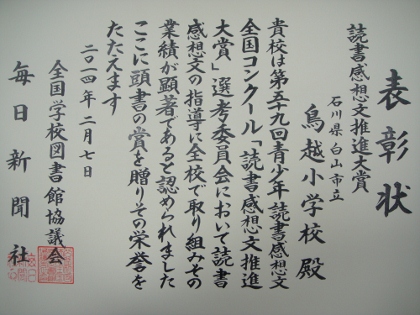 表彰状
読書感想文推進大賞
石川県白山市立
鳥越小学校殿
貴校は第五九回青少年読書感想文
全国コンクール「読書感想文推進
大賞」選考委員会において読書
感想文の指導に全校で取り組みその
業績が顕著であると認められました
ここに頭書の賞を贈りその栄誉を
たたえます
二〇一四年二月七日
全国学校図書館協議会
毎日新聞社